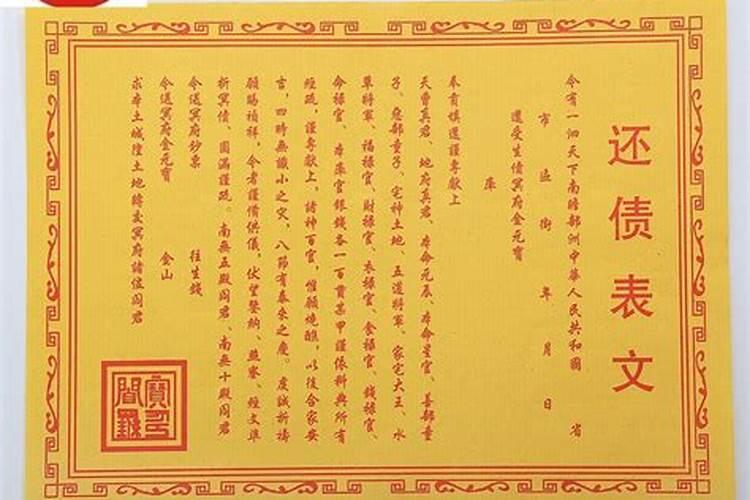 还债表文
今有一泗天下南瞻部洲中華人民共和國 省
市 區 街 年 月 日
還受生債冥府金元寶
庫
奉青填還謹專獻上
天曹真君、地府真君、本命元辰、本命星官、善部童
子、惡部童子、宅神土地、五道將軍、家宅大王、水
草將軍、福祿官、財祿官、衣祿官、食祿官、錢祿官、
命祿官、本庫官銀錢各一百貫某甲謹依科典所有
經疏，謹專獻上，諸神百官，惟願燒醮，以後合家安
吉，四時無讖小之灾，八節有泰來之慶。虔誠祈禱
願賜禎祥，令者謹備供儀，伏望鑒納、燕寥、經文准
折冥債、圓滿謹疏。南無五殿阎君、南無十殿阎君
令送冥府鈔票 往生錢
令送冥府金元寶 金山
求本土城隍土地轉交冥府諸位阎君